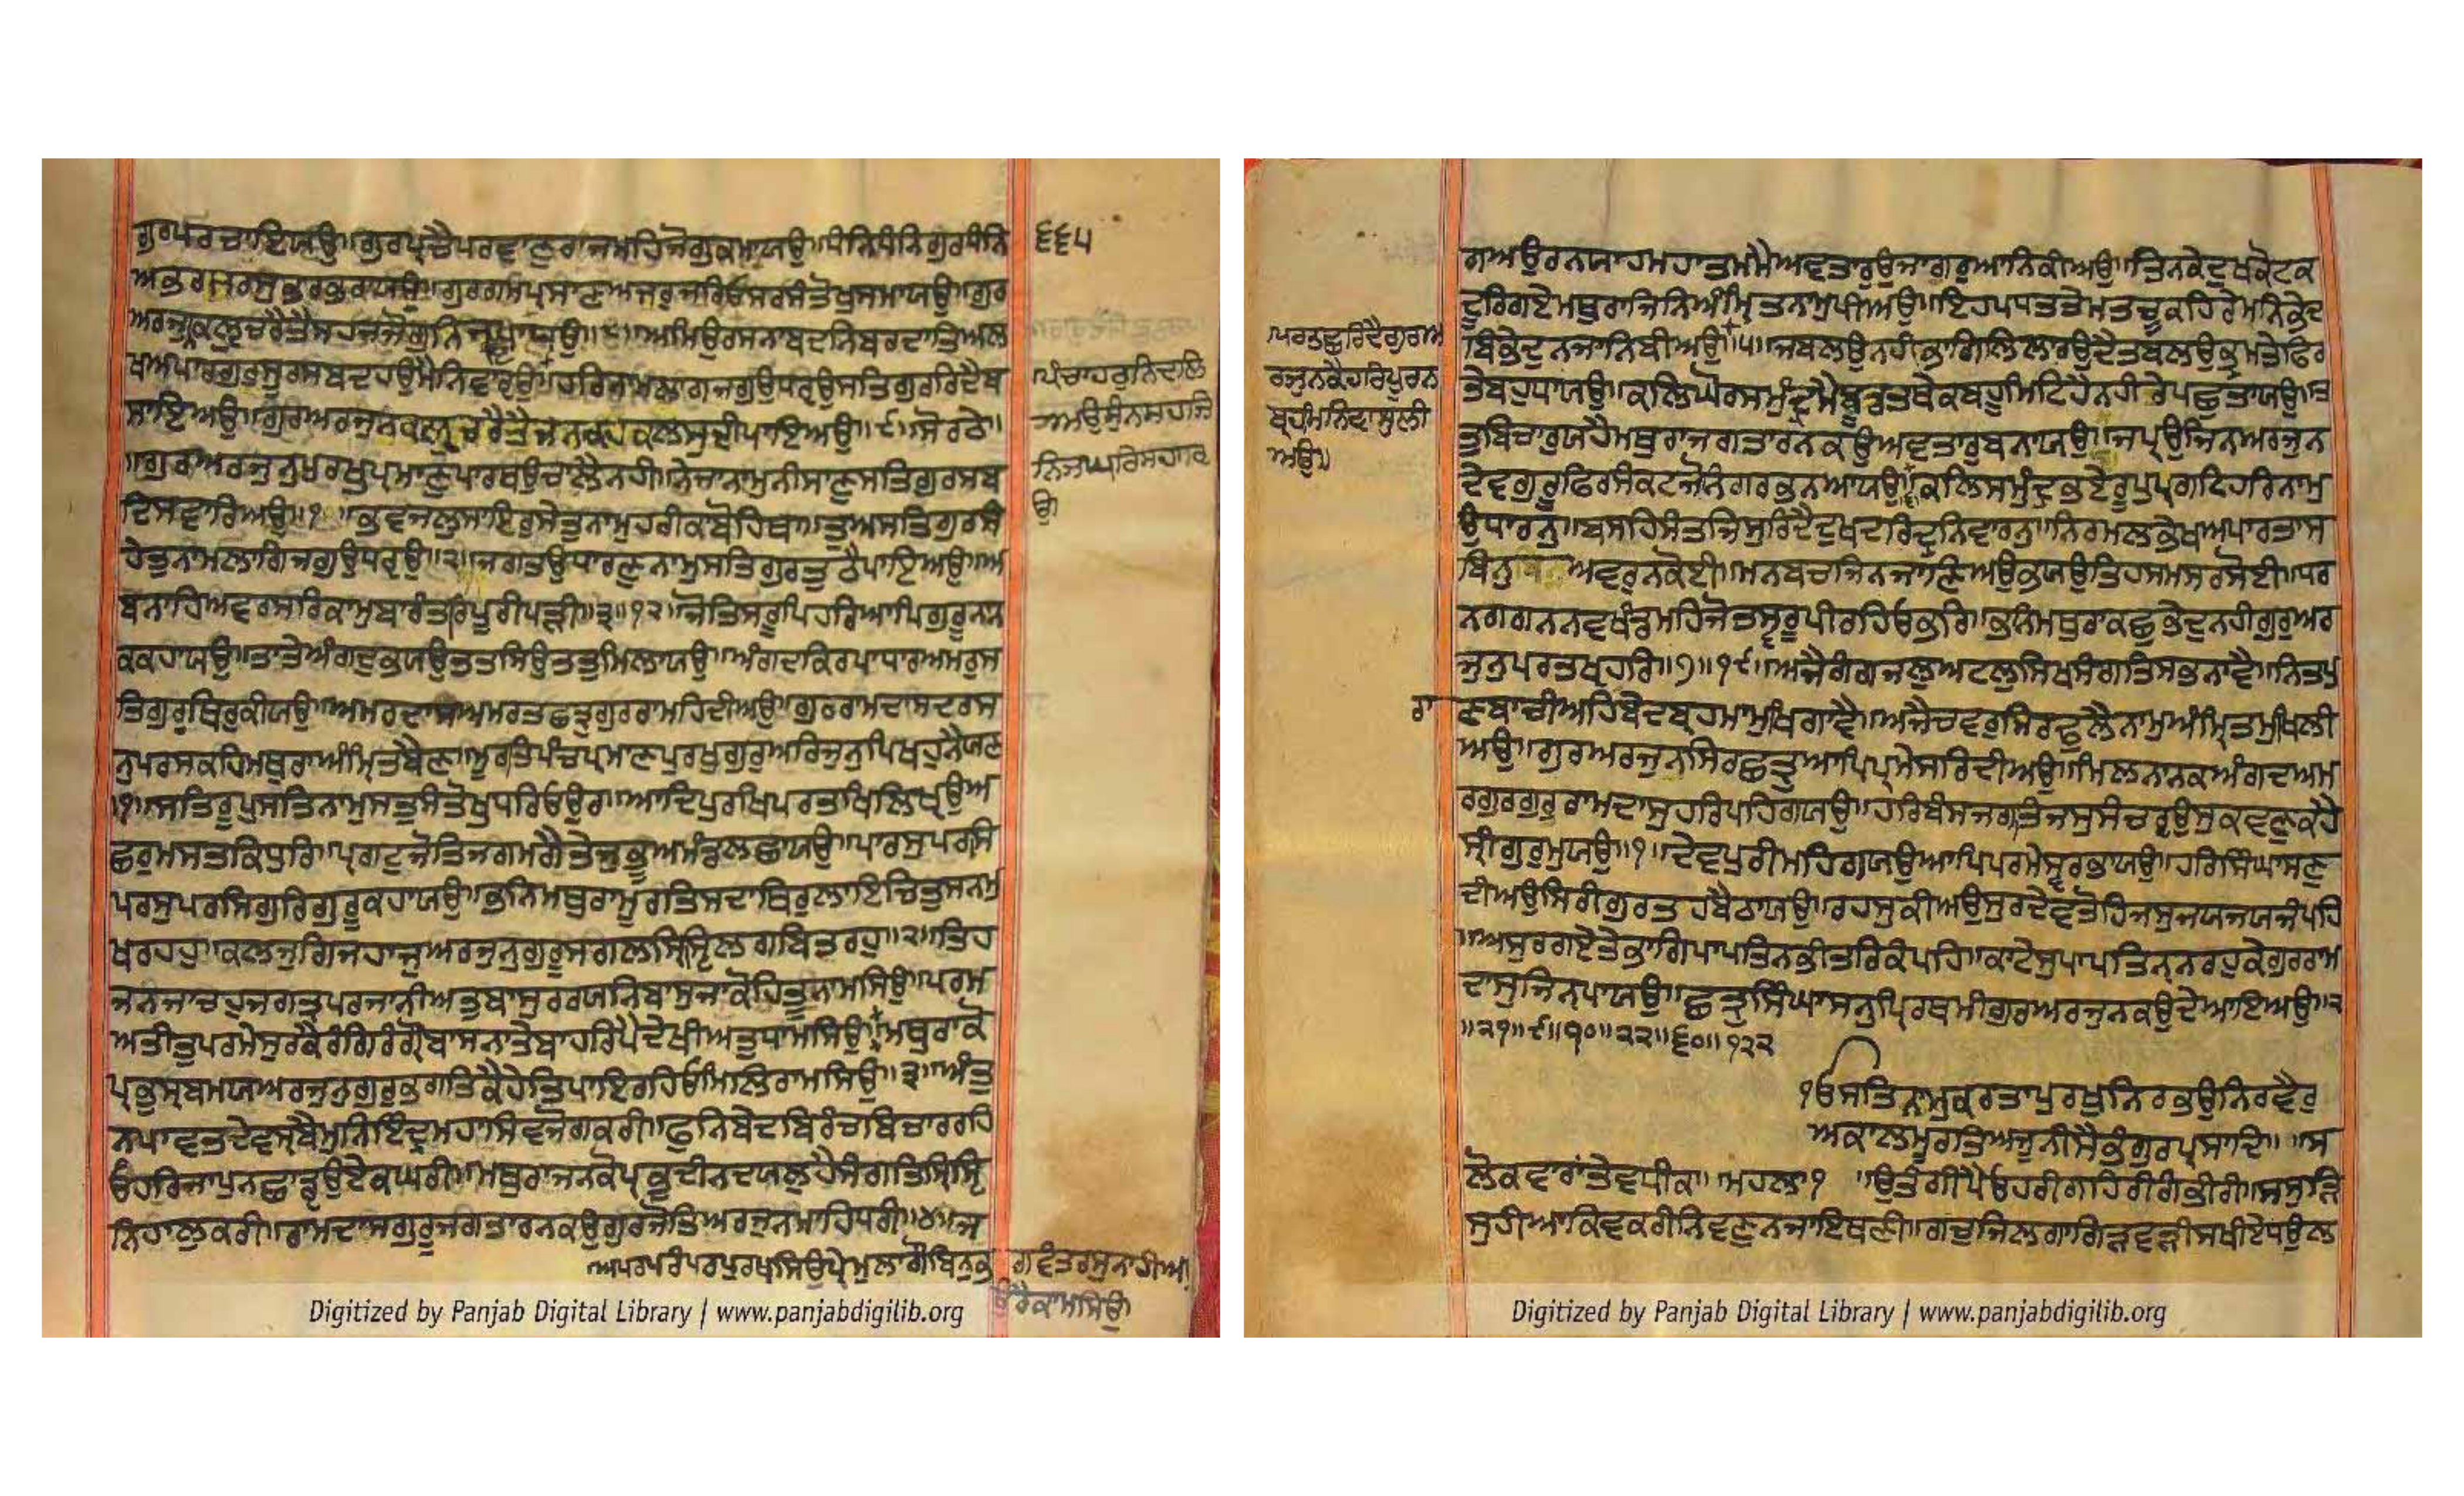 ਗੁਰਪਰਚਾਇਯਉ॥ਗੁਰਪ੍ਰਚੈਪਰਵਾਣੁਰਾਜਮਹਿਜੋਗੁਕਮਾਯਉ॥ਧੰਨਿਧੰਨਿਗੁਰਧੰਨਿ
ਅਭਰਜਰਸੁਭਰਭਰਯਉ॥ਗੁਰਗਮਪ੍ਰਮਾਣਅਜਰੁਜਰਿਓਸਰਸੰਤੋਖੁਸਮਾਯਉ॥ਗੁਰ
ਅਰਜੁਕਲੁਚਰੈਤੈਸਹਜਜੋਗੁਨਿਜੁਪਾਯਉ॥੮॥ਅਮਿਉਰਸਨਾਬਦਨਿਬਰਦਾਤਿਅਲ
ਖਅਪਾਰਗੁਰਸੂਰਸਬਦਹਉਮੈਨਿਵਾਰ੍ਉ॥ਹਰਿਨਾਮਲਾਗਜਗੁਉਧਰ੍ਉਸਤਿਗੁਰਰਿਦੈਬ
ਸਾਇਅਉ॥ਗੁਰਅਰਜੁਨਕਲੁਚਰੈਤੈਜਨਕਹਕਲਸੁਦੀਪਾਇਅਉ॥੯॥ਸੋਰਠੇ॥
॥ਗੁਰਅਰਜੁਨੁਪੁਰਖੁਪ੍ਰਮਾਣੁਪਾਰਥਉਚਾਲੈਨਹੀ॥ਨੇਜਾਨਾਮੁਨੀਸਾਣੁਸਤਿਗੁਰਸਬ
ਦਿਸਵਾਰਿਅਉ॥੧॥ਭਵਜਲੁਸਾਇਰੁਸੇਤੁਨਾਮੁਹਰੀਕਾਬੋਹਿਥਾ॥ਤੁਅਸਤਿਗੁਰਸੰ
ਹੇਤੁਨਾਮਲਾਗਿਜਗੁਉਧਰ੍ਉ॥੨॥ਜਗਤਉਧਾਰਣੁਨਾਮੁਸਤਿਗੁਰਤੁਠੈਪਾਇਅਉ॥ਅ
ਬਨਾਹਿਅਵਰਸਰਿਕਾਮੁਬਾਰੰਤਰਿਪੂਰੀਪੜੀ॥੩॥੧੨॥ਜੋਤਿਸਰੂਪਿਹਰਿਆਪਿਗੁਰੂਨਾਨ
ਕਕਹਾਯਉ॥ਤਾਤੇਅੰਗਦੁਭਯਉਤਤਸਿਉਤਤੁਮਿਲਾਯਉ॥ਅੰਗਦਕਿਰਪਾਧਾਰਅਮਰੁਸ
ਤਿਗੁਰੁਥਿਰੁਕੀਯਉ॥ਅਮਰਦਾਸਅਮਰਤਛਤ੍ਰਗੁਰਰਾਮਹਿਦੀਅਉ॥ਗੁਰਰਾਮਦਾਸਦਰਸ
ਨੁਪਰਸਕਹਿਮਥੁਰਾਅੰਮ੍ਰਿਤਬੈਣ॥ਮੂਰਤਿਪੰਚਪ੍ਰਮਾਣਪੁਰਖੁਗੁਰੁਅਰਿਜੁਨੁਪਿਖਹੁਨੈਯਣ
॥੧॥ਸਤਿਰੂਪੁਸਤਿਨਾਮੁਸਤੁਸੰਤੋਖੁਧਰਿਓਉਰ॥ਆਦਿਪੁਰਖਿਪਰਤਖਿਲਿਖ੍ਉਅ
ਛਰੁਮਸਤਕਿਧੁਰਿ॥ਪ੍ਰਗਟੁਜੋਤਿਜਗਮਗੈਤੇਜੁਭੂਅਮੰਡਲਛਾਯਉ॥ਪਾਰਸੁਪਰਸਿ
ਪਰਸੁਪਰਸਿਗੁਰਿਗੁਰੂਕਹਾਯਉ॥ਭਨਿਮਥੁਰਾਮੂਰਤਿਸਦਾਥਿਰੁਲਾਇਚਿਤੁਸਨਮੁ
ਖਰਹਹੁ॥ਕਲਜੁਗਿਜਹਾਜੁਅਰਜੁਨੁਗੁਰੂਸਗਲਸ੍ਰਿਸ੍ਟਿਲਗਬਿਤਰਹੁ॥੨॥ਤਿਹ
ਜਨਜਾਚਹੁਜਗਤ੍ਰਪਰਜਾਨੀਅਤੁਬਾਸੁਰਰਯਨਿਬਾਸੁਜਾਕੋਹਿਤੂਨਾਮਸਿਉ॥ਪਰਮ
ਅਤੀਤੁਪਰਮੇਸੁਰਕੈਰੰਗਿਰੰਗੌਬਾਸਨਾਤੇਬਾਹਰਿਪੈਦੇਖੀਅਤੁਧਾਮਸਿਉ॥ਮਥੁਰਾਕੋ
ਪ੍ਰਭੁਸ੍ਰਬਮਯਅਰਜੁਨੁਗੁਰੁਭਗਤਿਕੈਹੇਤਿਪਾਇਰਹਿਓਮਿਲਿਰਾਮਸਿਉ॥੩॥ਅੰਤੁ
ਨਪਾਵਤਦੇਵਸਬੈਮੁਨਿਇੰਦ੍ਰਮਹਾਸਿਵਜੋਗਕਰੀ॥ਫੁਨਿਬੇਦਬਿਰੰਚਬਿਚਾਰਰਹਿ
ਓਹਰਿਜਾਪੁਨਛਾਡ੍ਉਏਕਘਰੀ॥ਮਥੁਰਾਜਨਕੋਪ੍ਰਭੁਦੀਨਦਯਾਲੁਹੈਸੰਗਤਿਸ੍ਰਿਸ੍ਟਿ
ਨਿਹਾਲੁਕਰੀ॥ਰਾਮਦਾਸਗੁਰੂਜਗਤਾਰਨਕਉਗੁਰਜੋਤਿਅਰਜੁਨਮਾਹਿਧਰੀ॥੪॥ਜ
॥ਅਪਰਪਰੰਪਰਪੁਰਖਸਿਉਪ੍ਰੇਮੁਲਾਗੌਬਿਨੁਭ
ਗਵੰਤਰਸੁਨਾਹੀਅ
ਉਰੈਕਾਮਸਿਉ
੬੬੫
ਪੰਚਾਹਰੁਨਿਦਲਿ
ਅਉਸੁੰਨਸਹਜਿ
ਨਿਜਘਰਿਸਹਾਰ੍
ਉ
Digitized by Panjab Digital Library | www.panjabdigilib.org
ਗਅਉਰਨਯਾਹਮਹਾਤਮਮੈਅਵਤਾਰੁਉਜਾਗਰੁਆਨਿਕੀਅਉ॥ਤਿਨਕੇਦੁਖਕੋਟਕ
ਦੂਰਿਗਏਮਥੁਰਾਜਿਨਿਅੰਮ੍ਰਿਤਨਾਮੁਪੀਅਉ॥ਇਹਪਧਤਤੇਮਤਚੂਕਹਿਰੇਮਨਿਭੇਦ
ਬਿਭੇਦੁਨਜਾਨਿਬੀਅਉ॥੫॥ਜਬਲਉਨਹੀਭਾਗਿਲਿਲਾਰਉਦੈਤਬਲਉਭ੍ਰਮਤੇਫਿਰ
ਤੇਬਹੁਧਾਯਉ॥ਕਲਿਘੋਰਸਮੁੰਦ੍ਰਮੈਬੂਡਤਥੇਕਬਹੂਮਿਟਿਹੈਨਹੀਰੇਪਛੁਤਾਯਉ॥ਤ
ਤੁਬਿਚਾਰੁਯਹੈਮਥੁਰਾਜਗਤਾਰਨਕਉਅਵਤਾਰੁਬਨਾਯਉ॥ਜਪ੍ਉਜਿਨਅਰਜੁਨ
ਦੇਵਗੁਰੂਫਿਰਸੰਕਟਜੋਨੰਗਰਭਨਆਯਉ॥ਕਲਿਸਮੁੰਦ੍ਰਭਏਰੂਪੁਪ੍ਰਗਟਿਹਰਿਨਾਮੁ
ਉਧਾਰਨੁ॥ਬਸਹਿਸੰਤਜਿਸੁਰਿਦੈਦੁਖਦਰਿਦ੍ਰਨਿਵਾਰਨੁ॥ਨਿਰਮਲਭੇਖਅਪਾਰਤਾਸ
ਬਿਨੁਅਵਰੁਨਕੋਈ॥ਮਨਬਚਜਿਨਜਾਣਿਅਉਭਯਉਤਿਹਸਮਸਰਸੋਈ॥ਧਰ
ਨਗਗਨਨਵਖੰਡਮਹਿਜੋਤਸ੍ਵਰੂਪੀਰਹਿਓਭਰਿ॥ਭਨਿਮਥੁਰਾਕਛੁਭੇਦੁਨਹੀਗੁਰੁਅਰ
ਜੁਨੁਪਰਤਖ੍ਯਹਰਿ॥੭॥੧੯॥ਅਜੈਗੰਗਜਲੁਅਟਲੁਸਿਖਸੰਗਤਿਸਭਨਾਵੈ॥ਨਿਤਪੁ
ਰਾ
ਣਬਾਚੀਅਹਿਬੇਦਬ੍ਰਹਮਾਮੁਖਿਗਾਵੈ॥ਅਜੈਚਵਰੁਸਿਰਢੁਲੈਨਾਮੁਅੰਮ੍ਰਿਤਮੁਖਿਲੀ
ਅਉ॥ਗੁਰਅਰਜੁਨਸਿਰਛਤ੍ਰੁਆਪਿਪ੍ਰਮੇਸਰਿਦੀਅਉ॥ਮਿਲਨਾਨਕਅੰਗਦਅਮ
ਰਗੁਰਗੁਰੁਰਾਮਦਾਸੁਹਰਿਪਹਿਗਯਉ॥ਹਰਿਬੰਸਜਗਤਿਜਸੁਸੰਚਰ੍ਉਸੁਕਵਣੁਕਹੈ
ਸ੍ਰੀਗੁਰੁਮੁਯਉ॥੧॥ਦੇਵਪੁਰੀਮਹਿਗਯਉਆਪਿਪਰਮੇਸ੍ਵਰਭਾਯਉ॥ਹਰਿਸਿੰਘਾਸਣੁ
ਦੀਅਉਸਿਰੀਗੁਰਤਹਬੈਠਾਯਉ॥ਰਹਸੁਕੀਅਉਸੁਰਦੇਵਤੋਹਿਜਸੁਜਯਜਯਜੰਪਹਿ
॥ਅਸੁਰਗਏਤੇਭਾਗਿਪਾਪਤਿਨਭੀਤਰਿਕੰਪਹਿ॥ਕਾਟੇਸੁਪਾਪਤਿਨ੍ਨਰਹੁਕੇਗੁਰਰਾਮ
ਦਾਸੁਜਿਨ੍ਪਾਯਉ॥ਛਤ੍ਰੁਸਿੰਘਾਸਨੁਪਿਰਥਮੀਗੁਰਅਰਜੁਨਕਉਦੇਆਇਅਉ॥੨
॥੨੧॥੯॥੧੦॥੨੨॥੬੦॥੧੨੨
ੴਸਤਿਨਾਮੁਕਰਤਾਪੁਰਖੁਨਿਰਭਉਨਿਰਵੈਰੁ
ਅਕਾਲਮੂਰਤਿਅਜੂਨੀਸੈਭੰਗੁਰਪ੍ਰਸਾਦਿ॥ ॥ਸ
ਲੋਕਵਾਰਾਂਤੇਵਧੀਕ॥ਮਹਲਾ੧ ॥ਉਤੰਗੀਪੈਓਹਰੀਗਹਿਰੀਗੰਭੀਰੀ॥ਸਸੁੜਿ
ਸੁਹੀਆਕਿਵਕਰੀਨਿਵਣੁਨਜਾਇਥਣੀ॥ਗਚੁਜਿਲਗਾਗਿੜਵੜੀਸਖੀਏਧਉਲ
ਪਰਤਛੁਰਿਦੈਗੁਰਅ
ਰਜੁਨਕੈਹਰਿਪੂਰਨ
ਬ੍ਰਹਮਿਨਿਵਾਸੁਲੀ
ਅਉ॥
Digitized by Panjab Digital Library | www.panjabdigilib.org